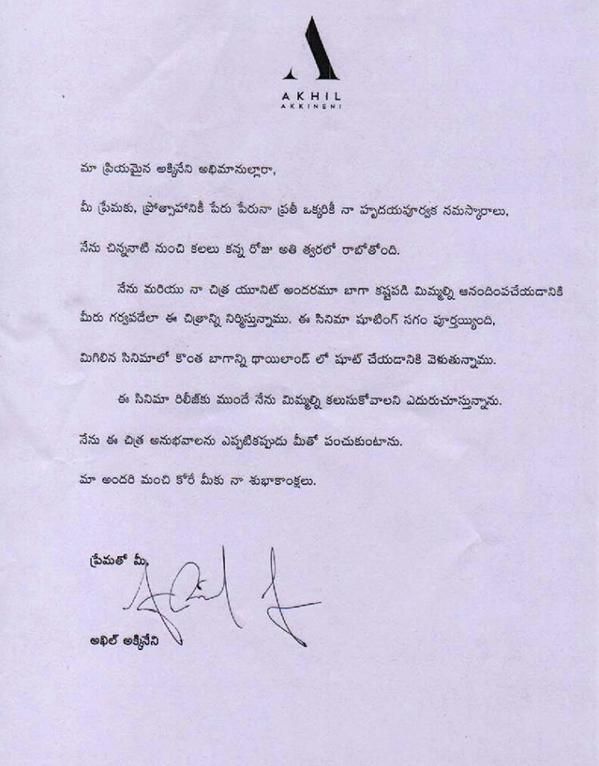 AKHIL
AKKINENI
మా ప్రియమైన అక్కినేని అభిమానుల్లారా,
మీ ప్రేమకు, ప్రోత్సాహానికీ పేరు పేరునా ప్రతీ ఒక్కరికీ నా హృదయపూర్వక నమస్కారాలు,
నేను చిన్ననాటి నుంచి కలలు కన్న రోజు అతి త్వరలో రాబోతోంది.
నేను మరియు నా చిత్ర యూనిట్ అందరమూ బాగా కష్టపడి మిమ్మల్ని ఆనందింపచేయడానికి
మీరు గర్వపడేలా ఈ చిత్రాన్ని నిర్మిస్తున్నాము. ఈ సినిమా షూటింగ్ సగం పూర్తయ్యింది,
మిగిలిన సినిమాలో కొంత బాగాన్ని థాయిలాండ్ లో షూట్ చేయడానికి వెళుతున్నాము.
ఈ సినిమా రిలీజ్‌కు ముందే నేను మిమ్మల్ని కలుసుకోవాలని ఎదురుచూస్తున్నాను.
నేను ఈ చిత్ర అనుభవాలను ఎప్పటికప్పుడు మీతో పంచుకుంటాను.
మా అందరి మంచి కోరే మీకు నా శుభాకాంక్షలు.
ప్రేమతో మీ,
అఖిల్ అక్కినేని